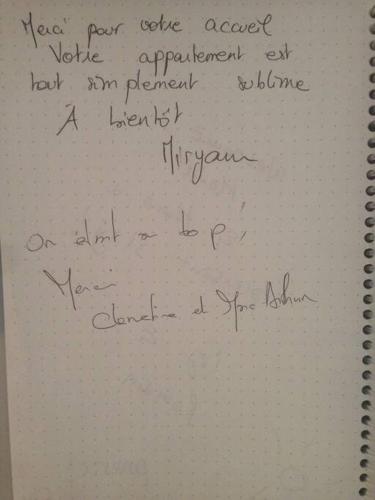 Merci pour votre accueil
Votre appartement est
tout simplement sublime
À bientôt
Miryam
On était au top !
Merci
Clementine et Arthur